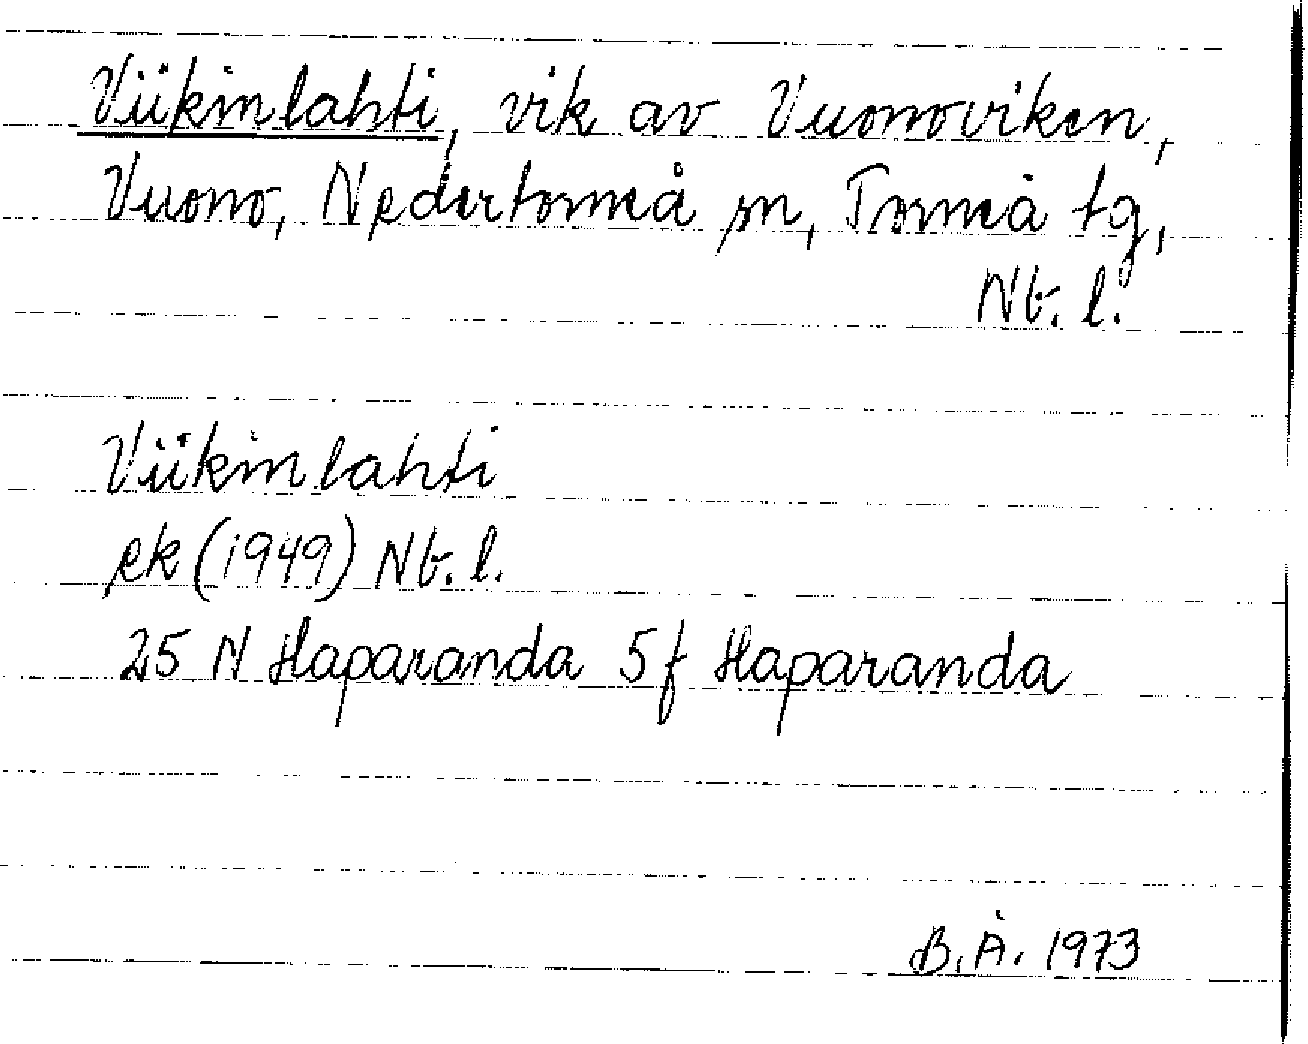 Viikinlahti, vik av Vuonoviken,
Vuono, Nedertorneå sn, Torneå tg,
Nb. l.
Viikinlahti
ek (1949) Nb. l.
25 N Haparanda 5f Haparanda
B.Å. 1973